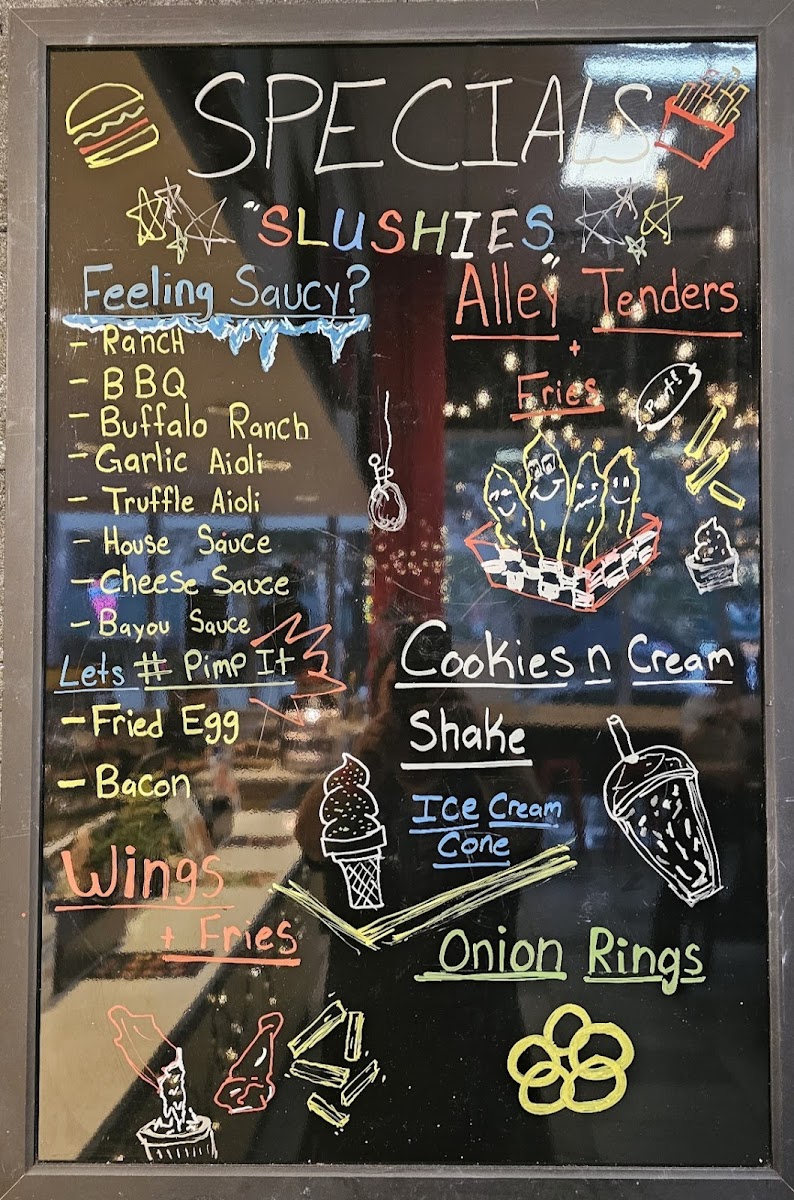 SPECIALS
"SLUSHIES"
Feeling Saucy?
- Ranch
- BBQ
- Buffalo Ranch
- Garlic Aioli
- Truffle Aioli
- House Sauce
- Cheese Sauce
- Bayou Sauce
Lets # Pimp It
- Fried Egg
- Bacon
Wings
+ Fries
Alley Tenders
+
Fries
Cookies n Cream
Shake
Ice Cream
Cone
Onion Rings